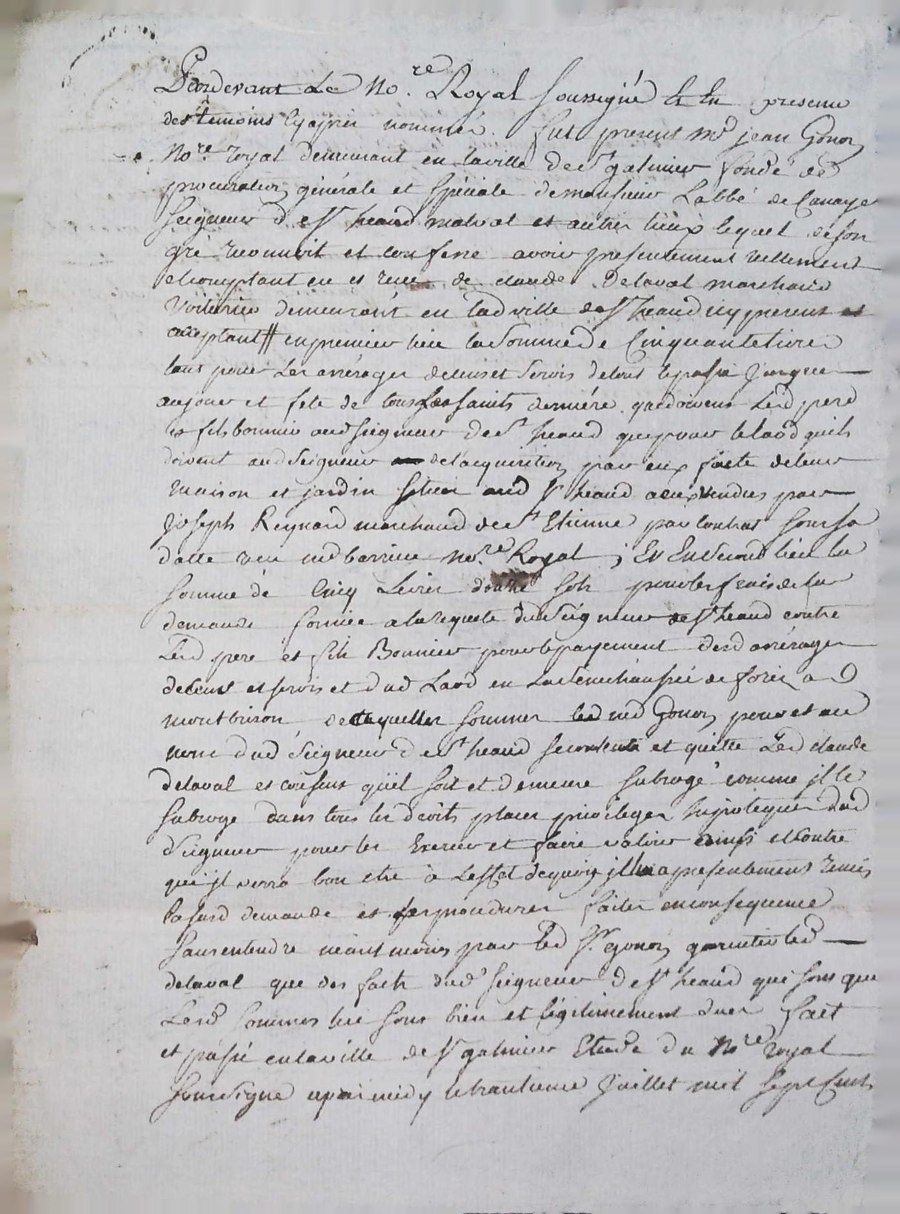 Pardevant Le No.re Royal soussigné Et En presence
des temoins cy apres nommés. fut present me jean Gonon
No.re royal demeurant en la ville de st galmier fondé de
procuration générale et spéciale de monsieur Labbé de Canaye
seigneur de st heand malval et autres lieux lequel de son
gré reconnoit et confesse avoir presentement reellement
et comptant eu et receu de claude Delaval marchand
voiturier demeurant en lad ville de st heand icy present et
acceptant en premier lieu la somme de Cinquante livres
tant pour Les arrérages de cens et servis de tout le passé jusques
aujour et fete de tous Les saints derniére que doivent Led pere
et fils bonnier aud seigneur de st heand que pour le laod quils
doivent aud seigneur de l'acquisition par eux faite de leur
maison et jardin situés aud st heand a eux vendus par
joseph Reynard marchand de st Etienne par contrat sous sa
datte receu me barrieu No.re Royal ; Et En second lieu la
somme de Cinq Livres sols pour les frais de la
demande formée a la requete dud seigneur de st heand contre
Led pere et fils Bonnier pour le payement desd arrérages
de cens et servis et dud Laod en La sénéchaussée de forez a
montbrison desquelles sommes led me Gonon pour et au
nom dud seigneur de st heand se contente et quitte Led claude
delaval et consent qu'il soit et demeure subrogé comme jl le
subroge dans tous les droits places privileges hipoteques dud
seigneur pour les Exercer et faire valoir ainsi et contre
qui jl verra bon etre à Leffet de quoy jl lui a presentement remis
la susd demande et les procedures faites en consequence
sans entendre néantmoins par led sr gonon garentir led
delaval que des faits dud seigneur de st heand que sous que
Lesd sommes lui sont bien et légitimement dues fait
et passé en la ville de st galmier Etude du No.re royal
soussigné apres midy le trantieme juillet mil sept Cents